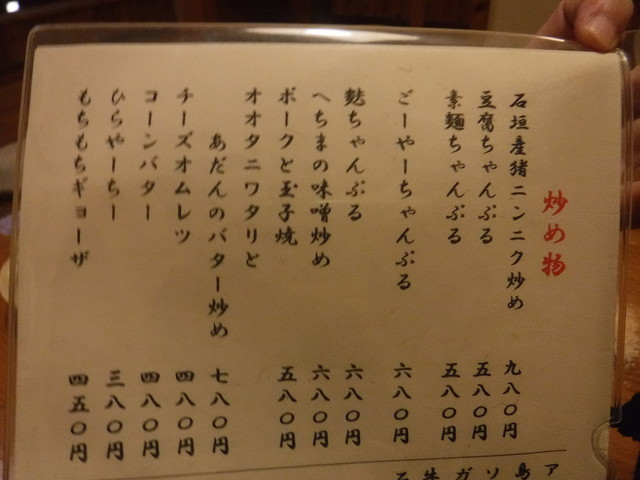 炒め物
石垣産猪ニンニク炒め 九八〇円
豆腐ちゃんぷる 五八〇円
素麺ちゃんぷる 五八〇円
ごーやーちゃんぷる 六八〇円
麩ちゃんぷる 六八〇円
へちまの味噌炒め 六八〇円
ポークと玉子焼 五八〇円
オオタニワタリと
あだんのバター炒め 七八〇円
チーズオムレツ 四八〇円
コーンバター 四八〇円
ひらやーちー 三八〇円
もちもちギョーザ 四五〇円